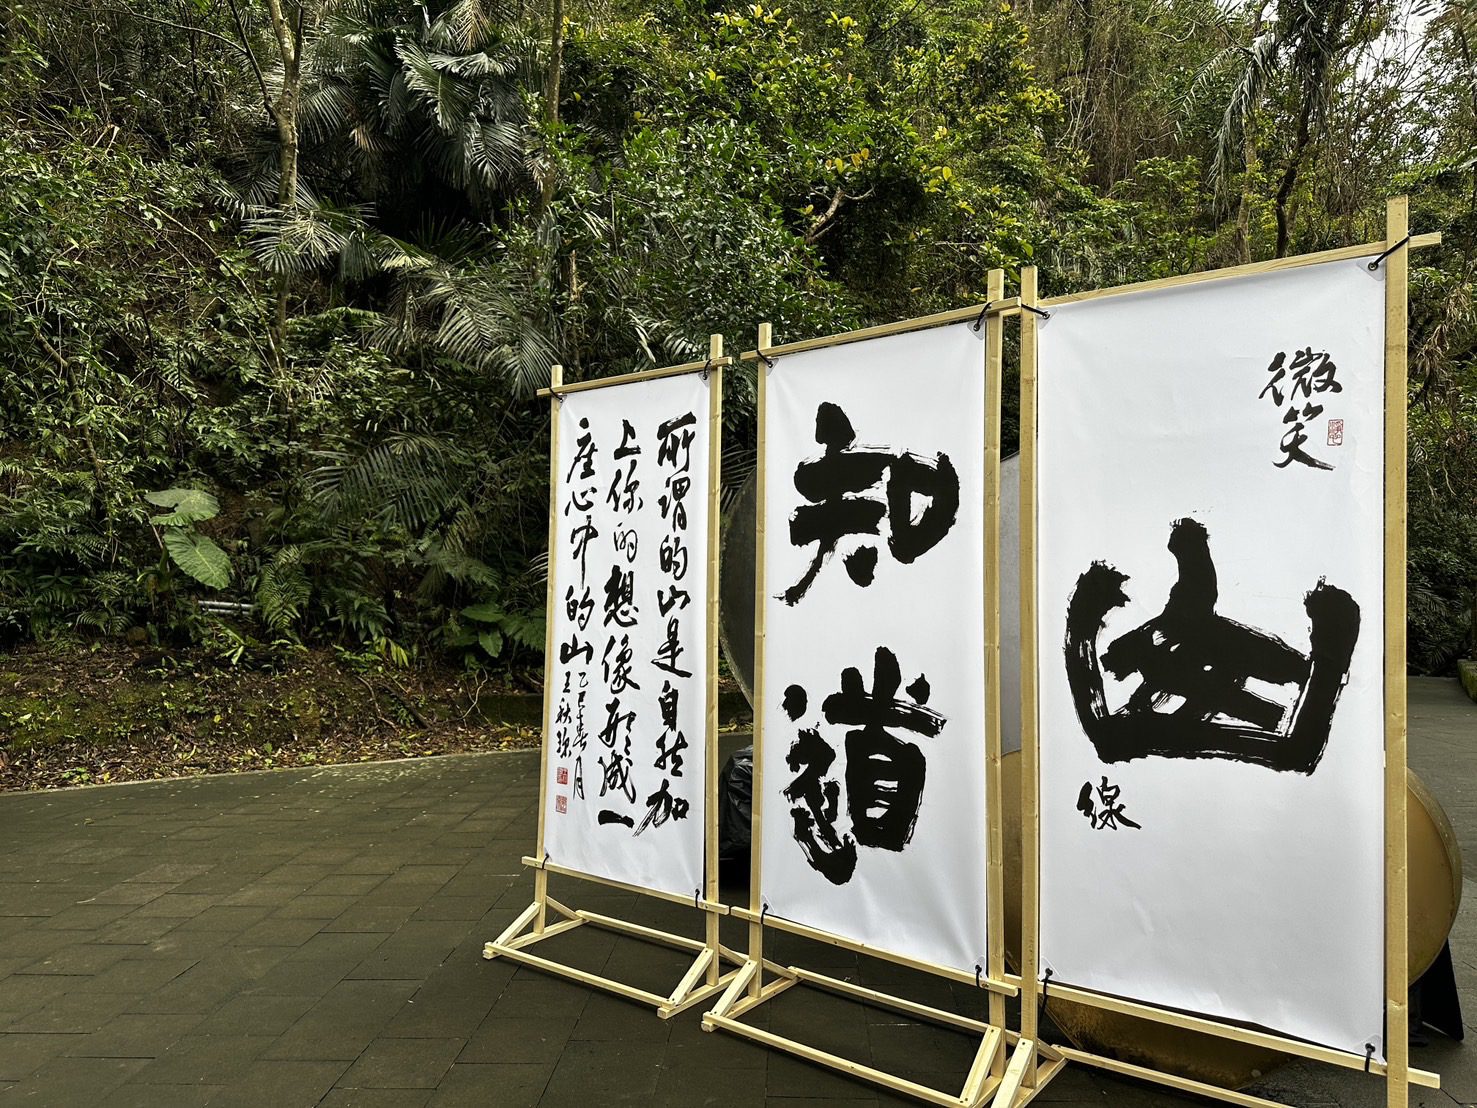 微笑
山
線
知道
所謂的山是自然加
上你的想像形成一
座心中的山
乙巳春月
王秋